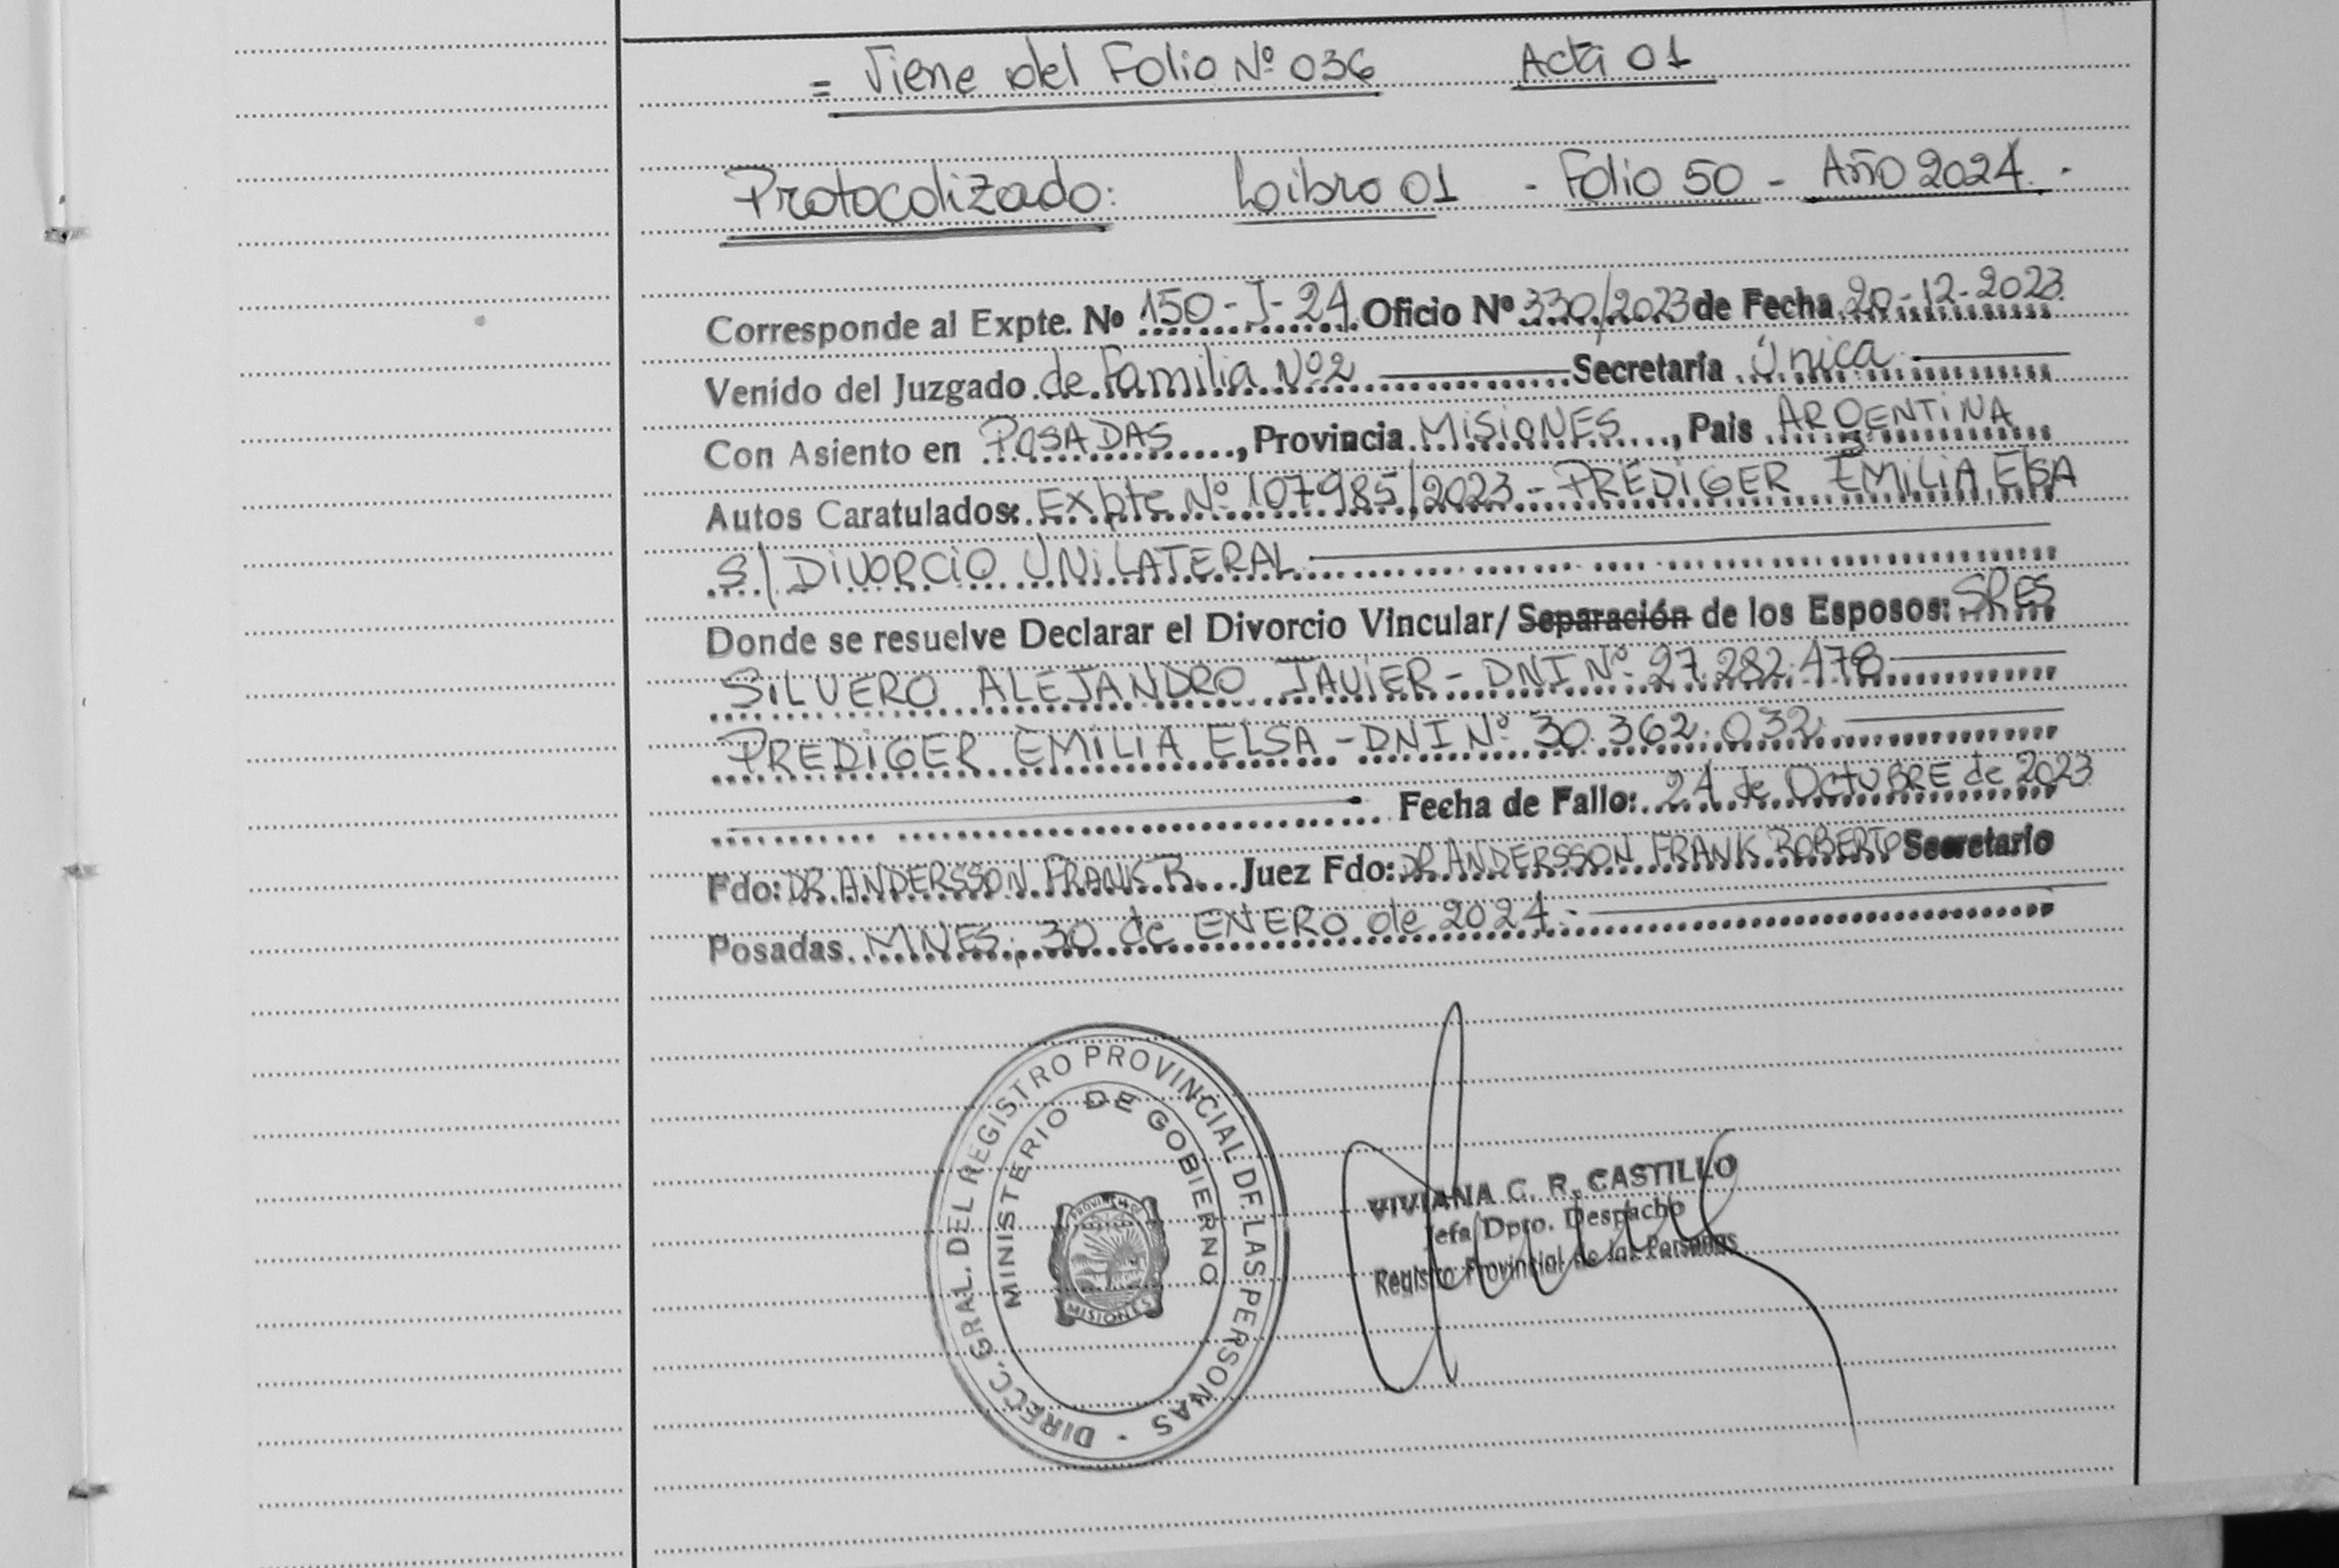 = Viene del Folio Nº 036 Acta 01
Protocolizado: Libro 01 - Folio 50 - Año 2024.-
Corresponde al Expte. Nº 150-I-24. Oficio Nº 330/2023 de Fecha 20-12-2023
Venido del Juzgado de Familia Nº2 Secretaría Única
Con Asiento en POSADAS, Provincia MISIONES, Pais ARGENTINA
Autos Caratulados: Expte Nº 107985/2023 - PREDIGER EMILIA ElSA
S/ DIVORCIO UNILATERAL
Donde se resuelve Declarar el Divorcio Vincular/ Separación de los Esposos: SRES
SILVERO ALEJANDRO JAVIER - DNI Nº 27.282.478
PREDIGER EMILIA ELSA - DNI Nº 30.362.032
Fecha de Fallo: 24 de OCTUBRE de 2023
Fdo: DR ANDERSSON FRANK R. Juez Fdo: DR ANDERSSON FRANK ROBERTO Secretario
Posadas. MNES, 30 de ENERO de 2024.-
DIRECC. GRAL. DEL REGISTRO PROVINCIAL DE LAS PERSONAS -
MINISTERIO DE GOBIERNO
PROVINCIA DE
MISIONES
VIVIANA C. R. CASTILLO
Jefa Dpto. Despacho
Registro Provincial de las Personas